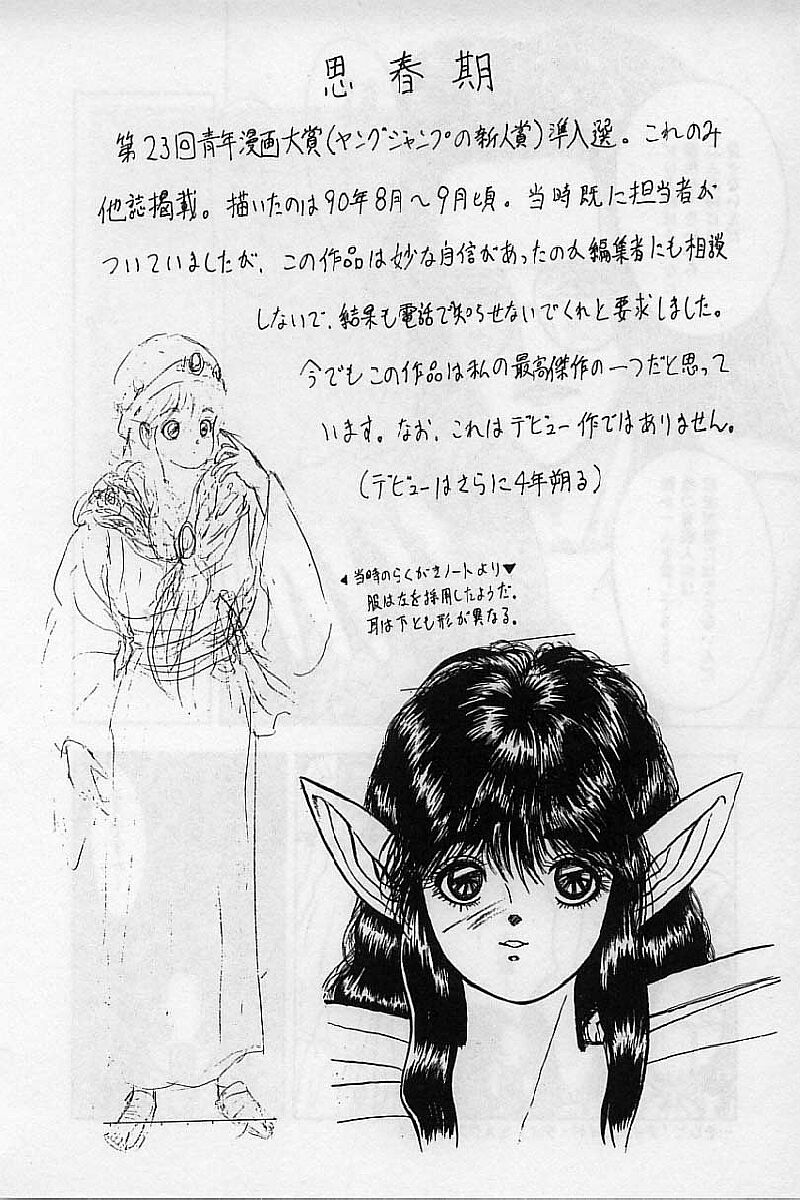 思春期
第23回青年漫画大賞(ヤングジャンプの新人賞)準入選。これのみ
他誌掲載。描いたのは90年8月〜9月頃。当時既に担当者が
ついていましたが、この作品は妙な自信があったのか編集者にも相談
しないで、結果も電話で知らせないでくれと要求しました。
今でもこの作品は私の最高傑作の一つだと思って
います。なお、これはデビュー作ではありません。
(デビューはさらに4年朔る)
◀当時のらくがきノートより▼
服は左を採用したようだ。
耳は下とも形が異なる。